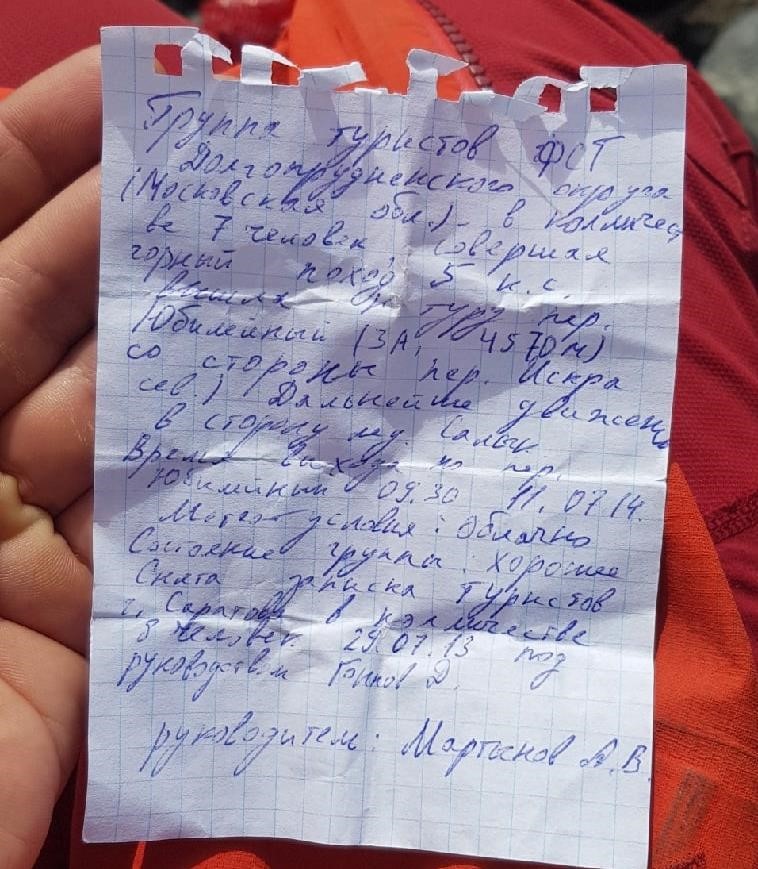 Группа туристов ФСТ
Долгопрудненского округа
(Московская обл.) в колличест
ве 7 человек совершая
горный поход 5 к.с.
вышла на тур пер.
Юбилейный (3А, 4570м)
со стороны пер. Искра
сев) Дальнейше движени
в сторону лед. Салык
Время выхода на пер.
Юбилейный 09.30 11.07.14.
Метеоусловия: Облачно
Состояние группы: Хорошее
Снята записка туристов
г. Саратова в колличестве
8 человек. 29.07.13 под
руководством Д.
руководитель: Мартынов А.В.